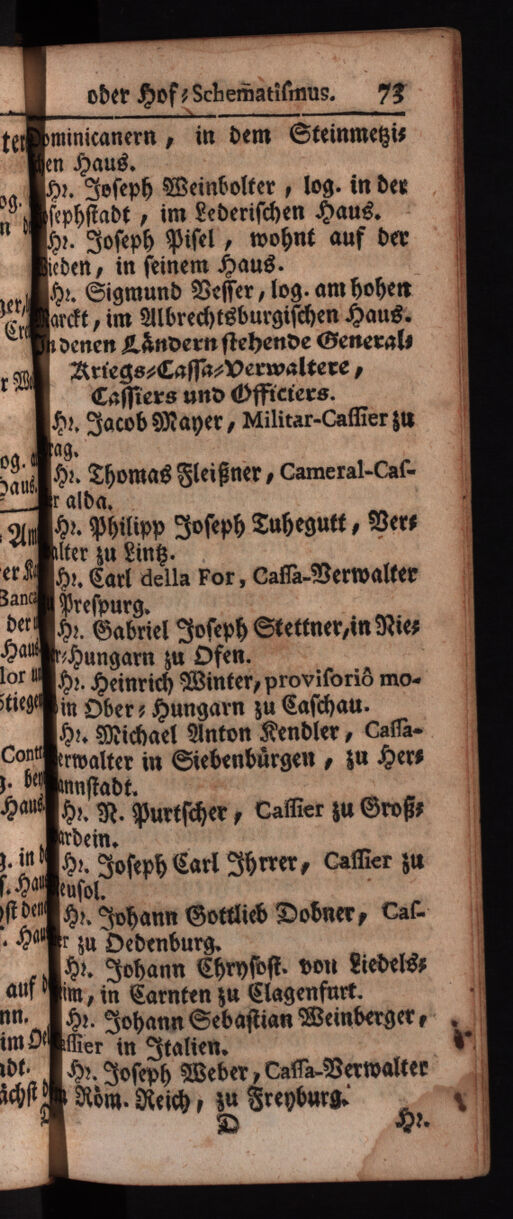 oder Hof-Schem̃atismus. 73
Dominicanern, in dem Steinmetzi-
schen Haus.
Hr. Joseph Weinbolter, log. in der
Josephstadt, im Lederischen Haus.
Hr. Joseph Pisel, wohnt auf der
Wieden, in seinem Haus.
Hr. Sigmund Vesser, log. am hohen
Marckt, im Albrechtsburgischen Haus.
In denen Ländern stehende General-
Kriegs-Cassa-Verwaltere,
Cassiers und Officiers.
Hr. Jacob Mayer, Militar-Cassier zu
rag.
Hr. Thomas Fleißner, Cameral-Cas-
r alda.
Hr. Philipp Joseph Tuhegutt, Ver-
alter zu Lintz.
Hr. Carl della For, Cassa-Verwalter
Prespurg.
Hr. Gabriel Joseph Stettner, in Nie-
r-Hungarn zu Ofen.
Hr. Heinrich Winter, provisoriô mo-
in Ober-Hungarn zu Caschau.
Hr. Michael Anton Kendler, Cassa-
erwalter in Siebenbürgen, zu Her-
annstadt.
Hr. N. Purtscher, Cassier zu Groß-
ardein.
Hr. Joseph Carl Jhrrer, Cassier zu
eusol.
Hr. Johann Gottlieb Dobner, Cas-
er zu Oedenburg.
Hr. Johann Chrysost. von Liedels-
im, in Carnten zu Clagenfurt.
Hr. Johann Sebastian Weinberger,
assier in Italien.
Hr. Joseph Weber, Cassa-Verwalter
Röm. Reich, zu Freyburg.
D Hr.